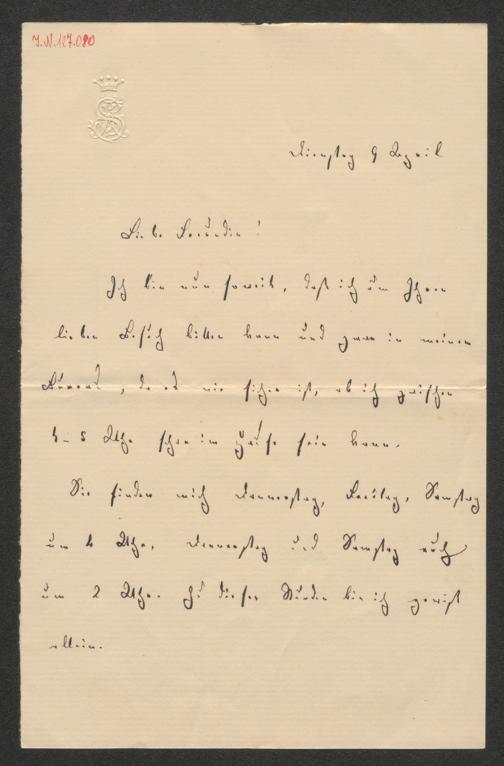 I.N. 127.080
Dienstag 9 April
Liebe Freundin!
Ich bin nun soweit, daß ich um Ihren
lieben Besuch bitten kann und zwar in meinem
Bureau, da es nie sicher ist, ob ich zwischen
4–5 Uhr schon im Hause sein kann.
Sie finden mich Donnerstag, Freitag, Samstag
um 4 Uhr, Donnerstag und Samstag auch
um 2 Uhr. Zu diesen Stunden bin ich gewiß
allein.